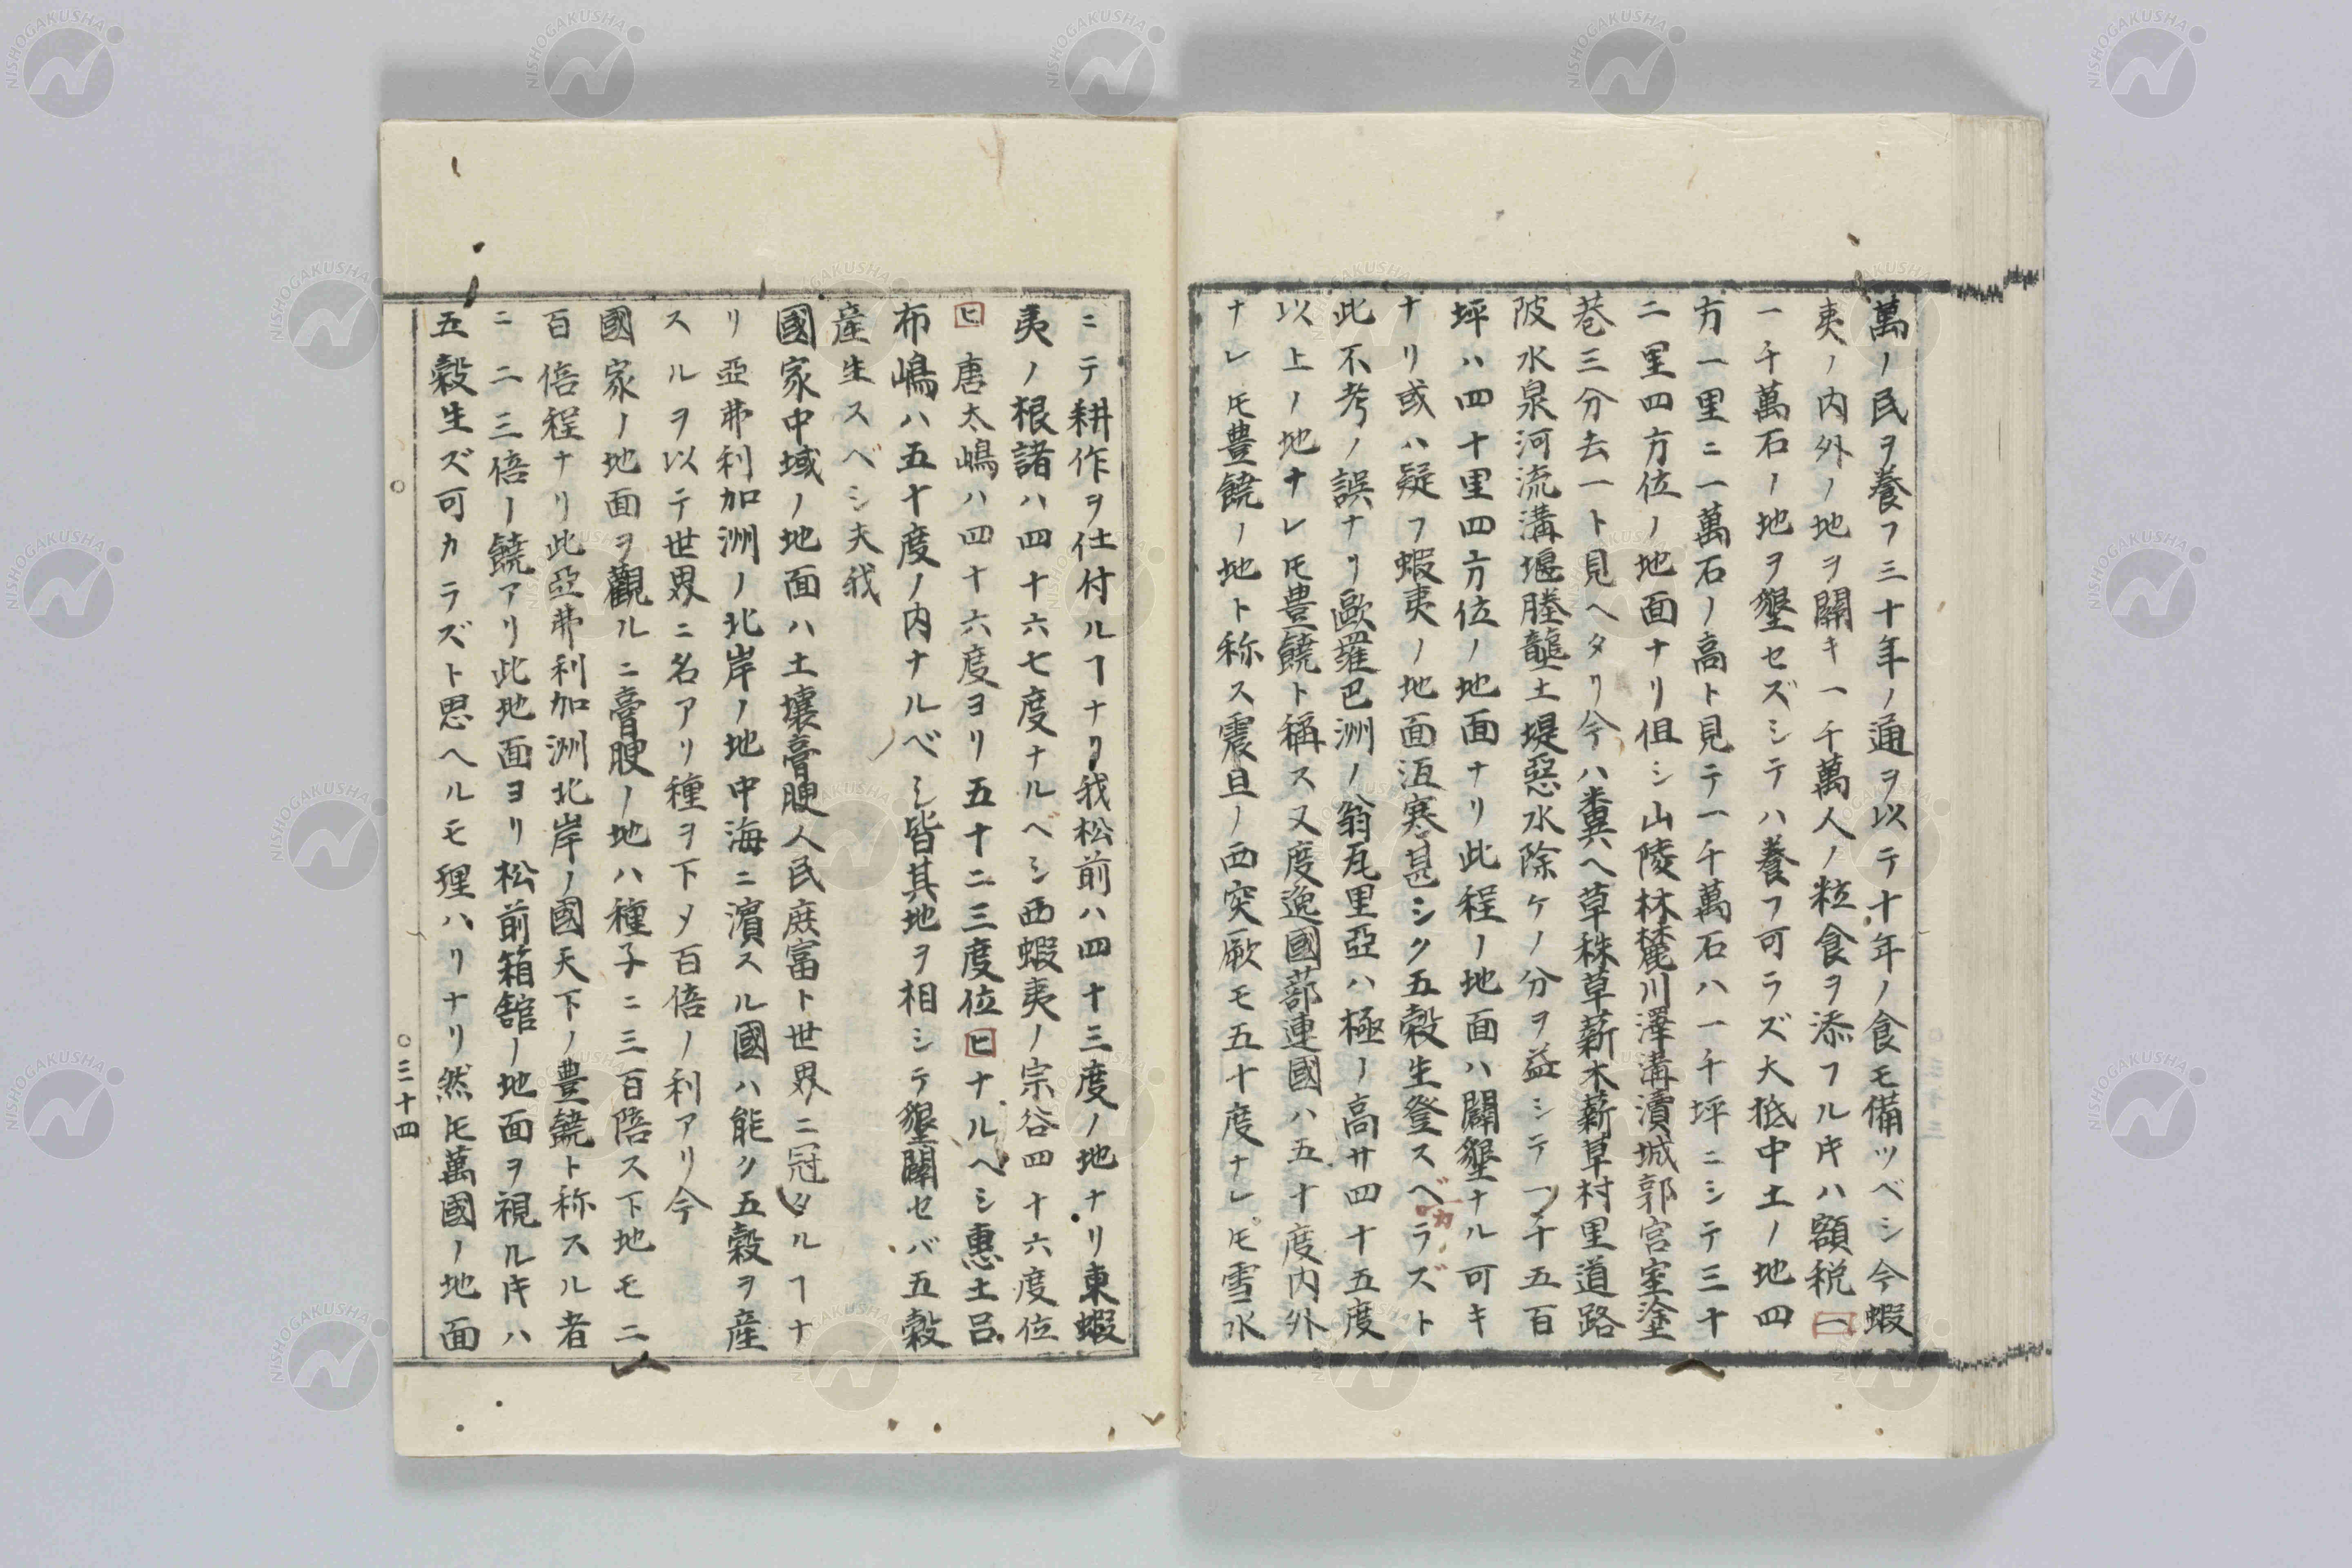 萬ノ民ヲ養フ三十年ノ通ヲ以テ十年ノ食モ備ツベシ今蝦
夷ノ内外ノ地ヲ闢キ一千萬人ノ粒食ヲ添フルキハ額税一
一千萬石ノ地ヲ墾セズシテハ養フ可ラズ大抵中土ノ地四
方一里ニ一萬石ノ高ト見テ一千萬石ハ一千坪ニシテ三十
二里四方位ノ地面ナリ但シ山陵林麓川澤溝瀆城郭宮室塗
巷三分去一ト見ヘタリ今ハ糞ヘ草秣草薪木薪草村里道路
陂水泉河流溝堰塍壟土堤惡水除ケノ分ヲ益シテ一千五百
坪ハ四十里四方位ノ地面ナリ此程ノ地面ハ闢墾ナル可キ
ナリ或ハ疑フ蝦夷ノ地面沍寒甚シク五穀生登スベカラズト
此不考ノ誤ナリ歐羅巴洲ノ翁瓦里亞ハ極ノ高サ四十五度
以上ノ地ナレ𪜈豊饒ト稱ス又度逸國蔀連國ハ五十度内外
ナレ𪜈豊饒ノ地ト称ス震旦ノ西突厥モ五十度ナレ𪜈雪氷
ニテ耕作ヲ仕付ルヿナリ我松前ハ四十三度ノ地ナリ東蝦
夷ノ根諸ハ四十六七度ナルベシ西蝦夷ノ宗谷四十六度位
ヒ唐太嶋ハ四十六度ヨリ五十二三度位ヒナルヘシ惠土呂
布嶋ハ五十度ノ内ナルベシ皆其地ヲ相シテ墾闢セバ五穀
産生スベシ夫我
國家中域ノ地面ハ土壤膏腴人民庶富ト世界ニ冠タルヿナ
リ亞弗利加洲ノ北岸ノ地中海ニ濵スル國ハ能ク五穀ヲ産
スルヲ以テ世界ニ名アリ種ヲ下メ百倍ノ利アリ今
國家ノ地面ヲ觀ルニ膏腴ノ地ハ種子ニ三百陪ス下地モ二
百倍程ナリ此亞弗利加洲北岸ノ國天下ノ豊饒ト称スル者
ニ二三倍ノ饒アリ此地面ヨリ松前箱舘ノ地面ヲ視ルキハ
五穀生ズ可カラズト思ヘルモ理ハリナリ然𪜈萬國ノ地面
○
○三十四
NISHOGAKUSHA